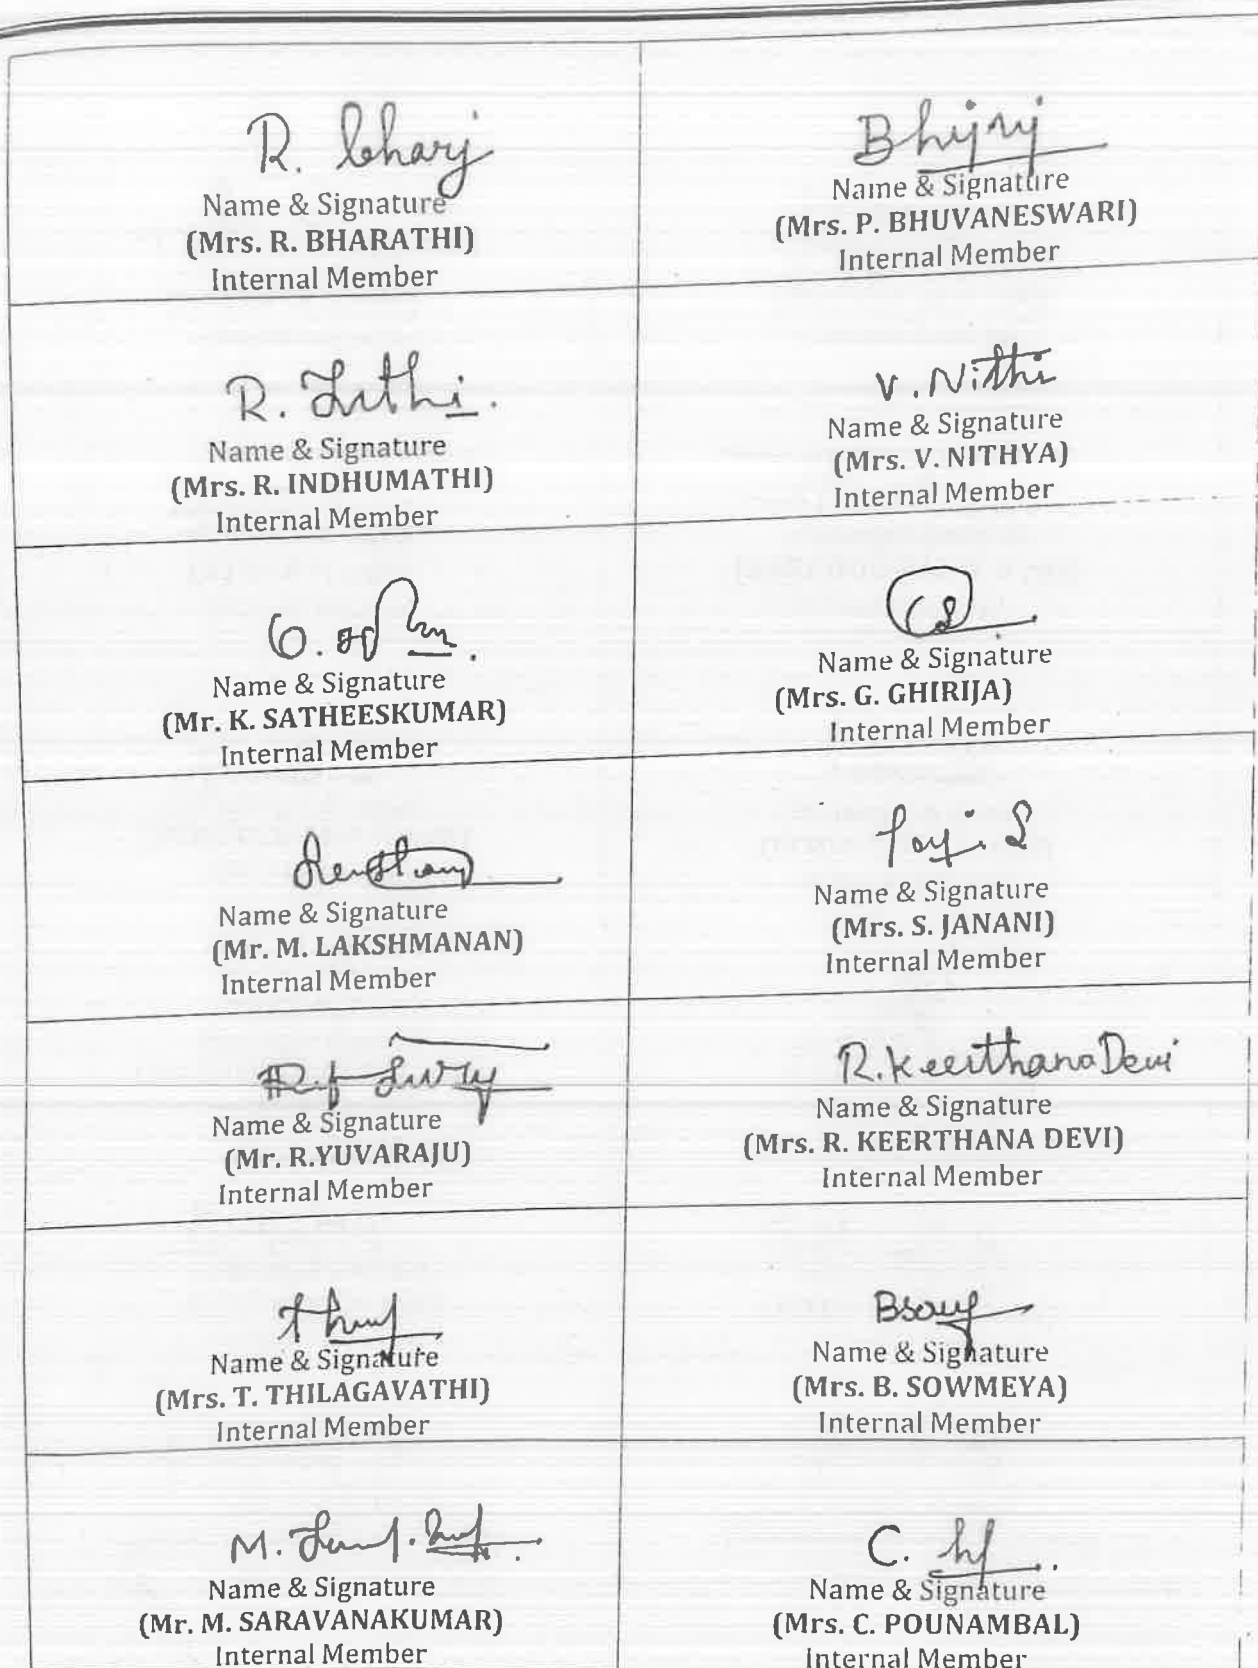 R.
Name & Signature
(Mrs. R. BHARATHI)
Internal Member
Name & Signature
(Mrs. P. BHUVANESWARI)
Internal Member
R.
Name & Signature
(Mrs. R. INDHUMATHI)
Internal Member
V. Nithi
Name & Signature
(Mrs. V. NITHYA)
Internal Member
Name & Signature
(Mr. K. SATHEESKUMAR)
Internal Member
Name & Signature
(Mrs. G. GHIRIJA)
Internal Member
Name & Signature
(Mr. M. LAKSHMANAN)
Internal Member
Name & Signature
(Mrs. S. JANANI)
Internal Member
Name & Signature
(Mr. R.YUVARAJU)
Internal Member
R. Keerthana Devi
Name & Signature
(Mrs. R. KEERTHANA DEVI)
Internal Member
Name & Signature
(Mrs. T. THILAGAVATHI)
Internal Member
Name & Signature
(Mrs. B. SOWMEYA)
Internal Member
M.
Name & Signature
(Mr. M. SARAVANAKUMAR)
Internal Member
C.
Name & Signature
(Mrs. C. POUNAMBAL)
Internal Member